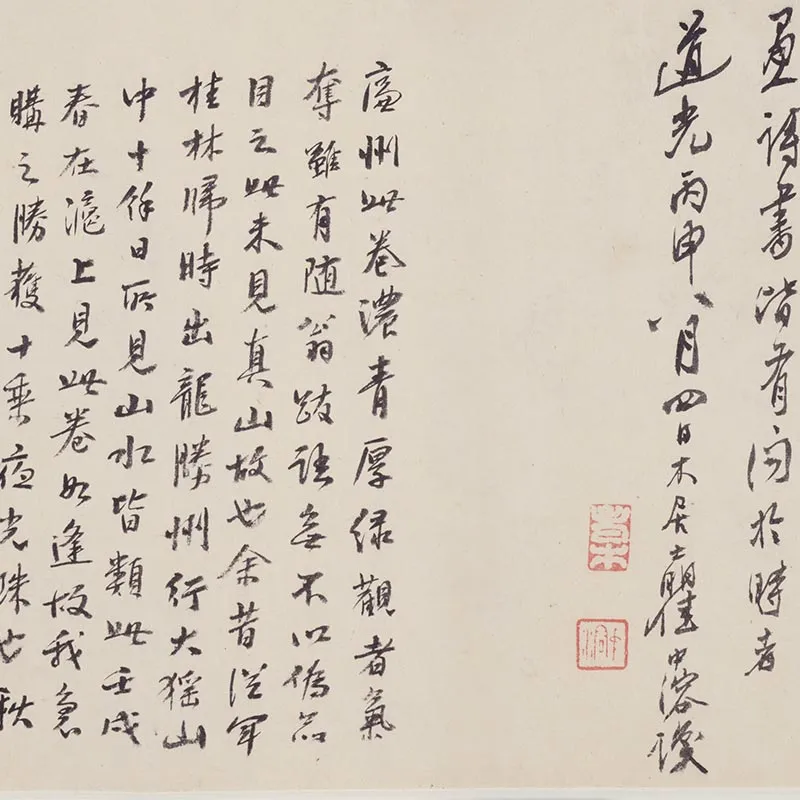 畫詩書皆有聞於時者
道光丙申八月四日木居士瞿中溶跋
中溶
廉州此卷濃青厚緑觀者氣
奪雖有随翁跋語無不以偽品
目之此未見真山故也余昔從軍
桂林歸時出龍勝州行大猺山
中十餘日所見山水皆類此壬戌
春在滬上見此卷如逢故我急
購之勝獲十乘夜光珠也秋